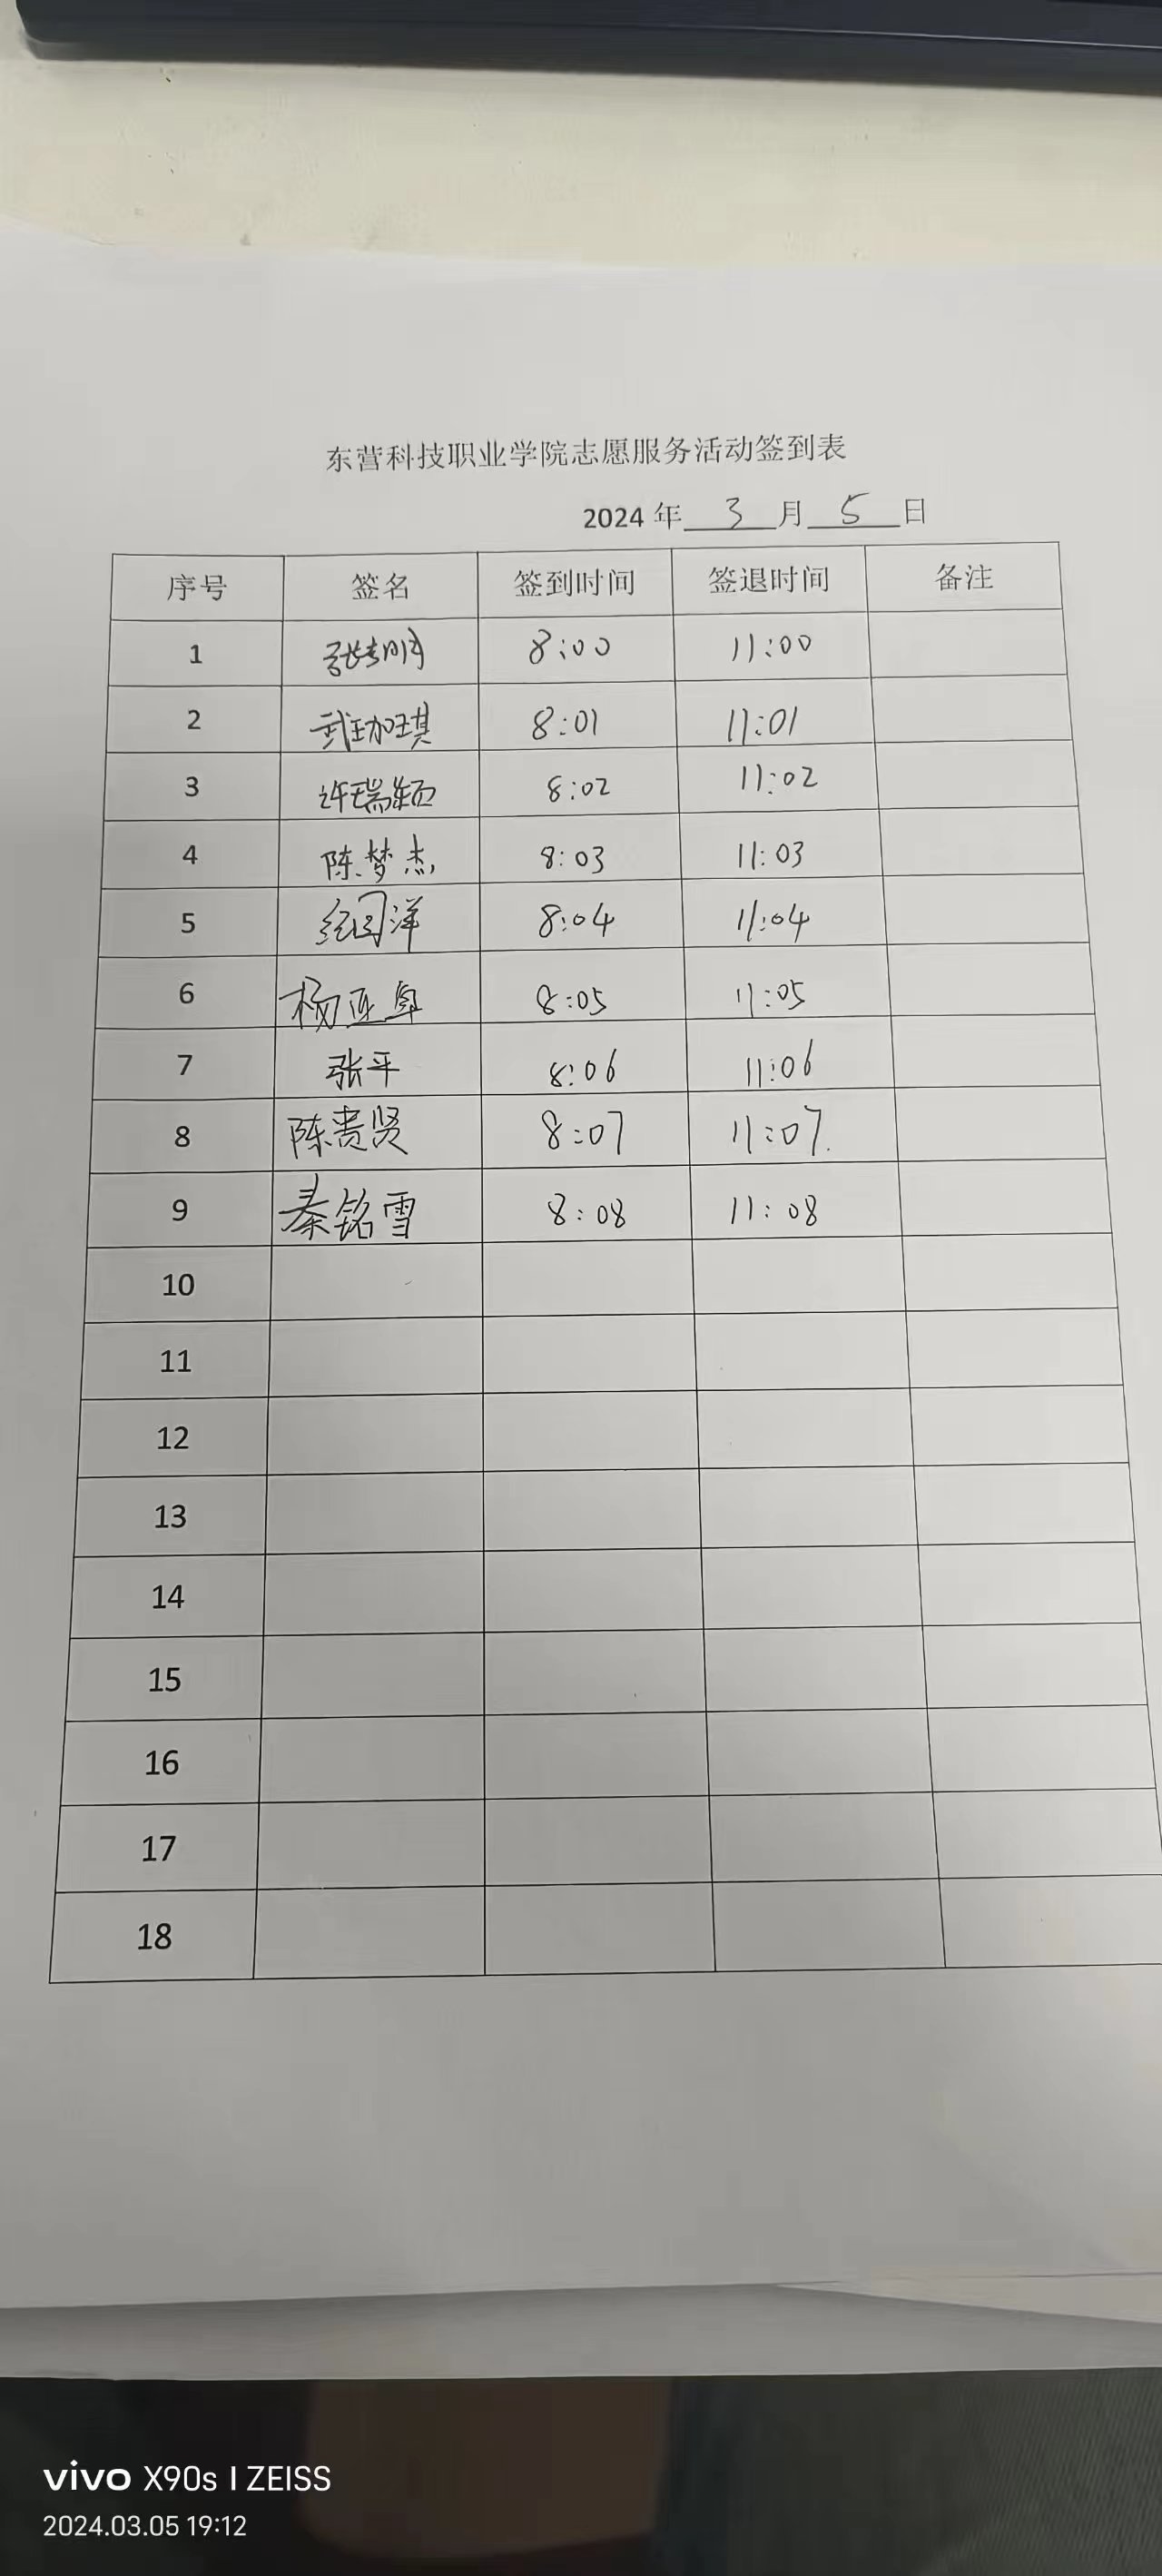 东营科技职业学院志愿服务活动签到表
2024 年 3 月 5 日
序号 签名 签到时间 签退时间 备注
1 8:00 11:00
2 武珈琪 8:01 11:01
3 许瑞颖 8:02 11:02
4 陈梦杰 8:03 11:03
5 洋 8:04 11:04
6 杨亚卓 8:05 11:05
7 张平 8:06 11:06
8 陈贵贤 8:07 11:07
9 秦铭雪 8:08 11:08
10
11
12
13
14
15
16
17
18
vivo X90s | ZEISS
2024.03.05 19:12